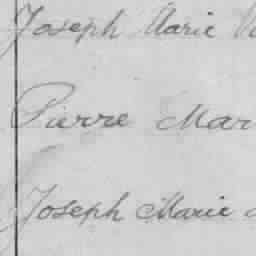 Joseph Marie
Pierre Mar
Joseph Marie